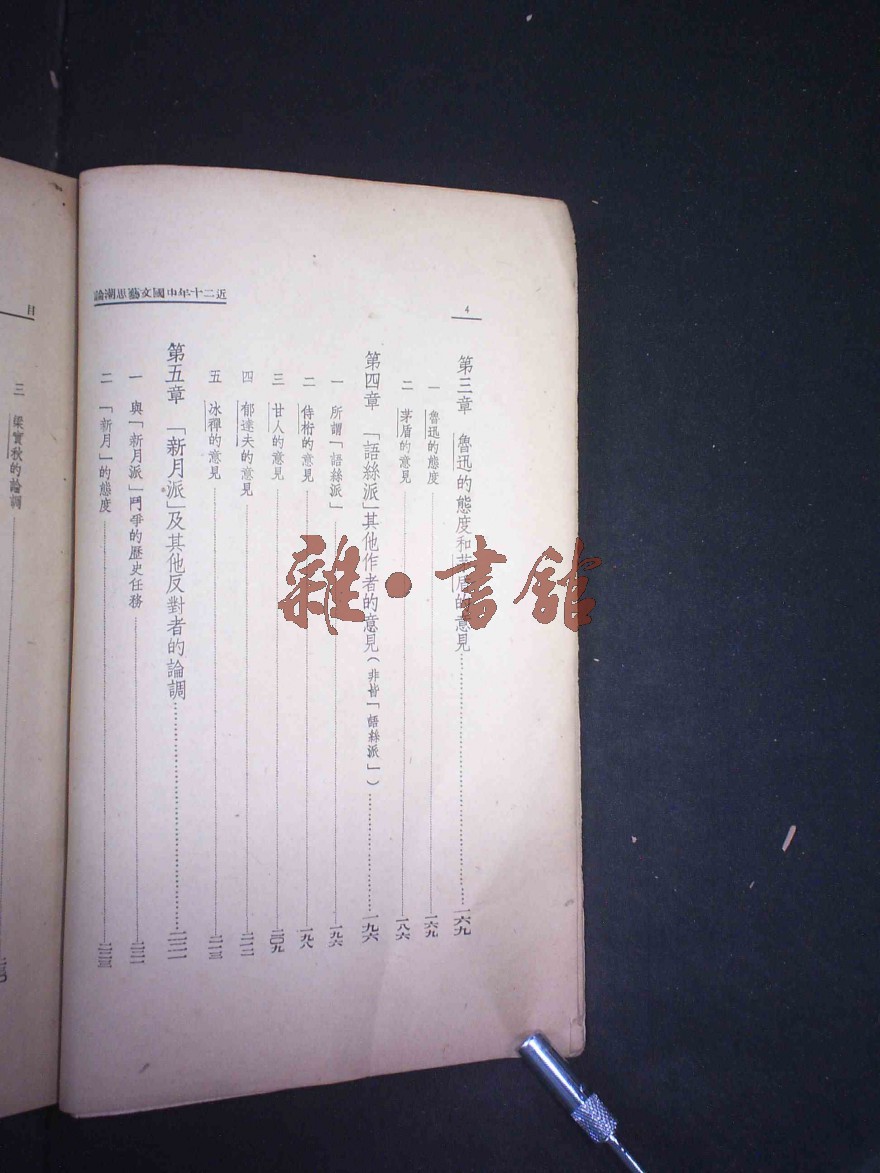 近二十年中國文藝思潮論
4
第三章 魯迅的態度和茅盾的意見 一六九
一 魯迅的態度 一六九
二 茅盾的意見 一八六
第四章 「語絲派」其他作者的意見（非皆「語絲派」） 一九六
一 所謂「語絲派」 一九六
二 侍桁的意見 一九八
三 甘人的意見 二〇九
四 郁達夫的意見 二一二
五 冰禪的意見 二一三
第五章 「新月派」及其他反對者的論調 二二一
一 與「新月派」鬥爭的歷史任務 二二一
二 「新月」的態度 二二三
目
三 梁實秋的論調
雜·書館